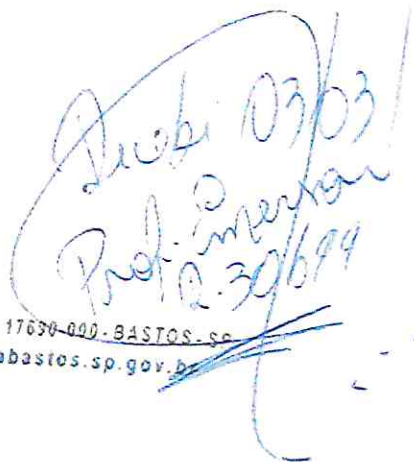 Recebi 03/03
Prof. Emerson
17690-000-BASTOS-SP
abastos.sp.gov.br